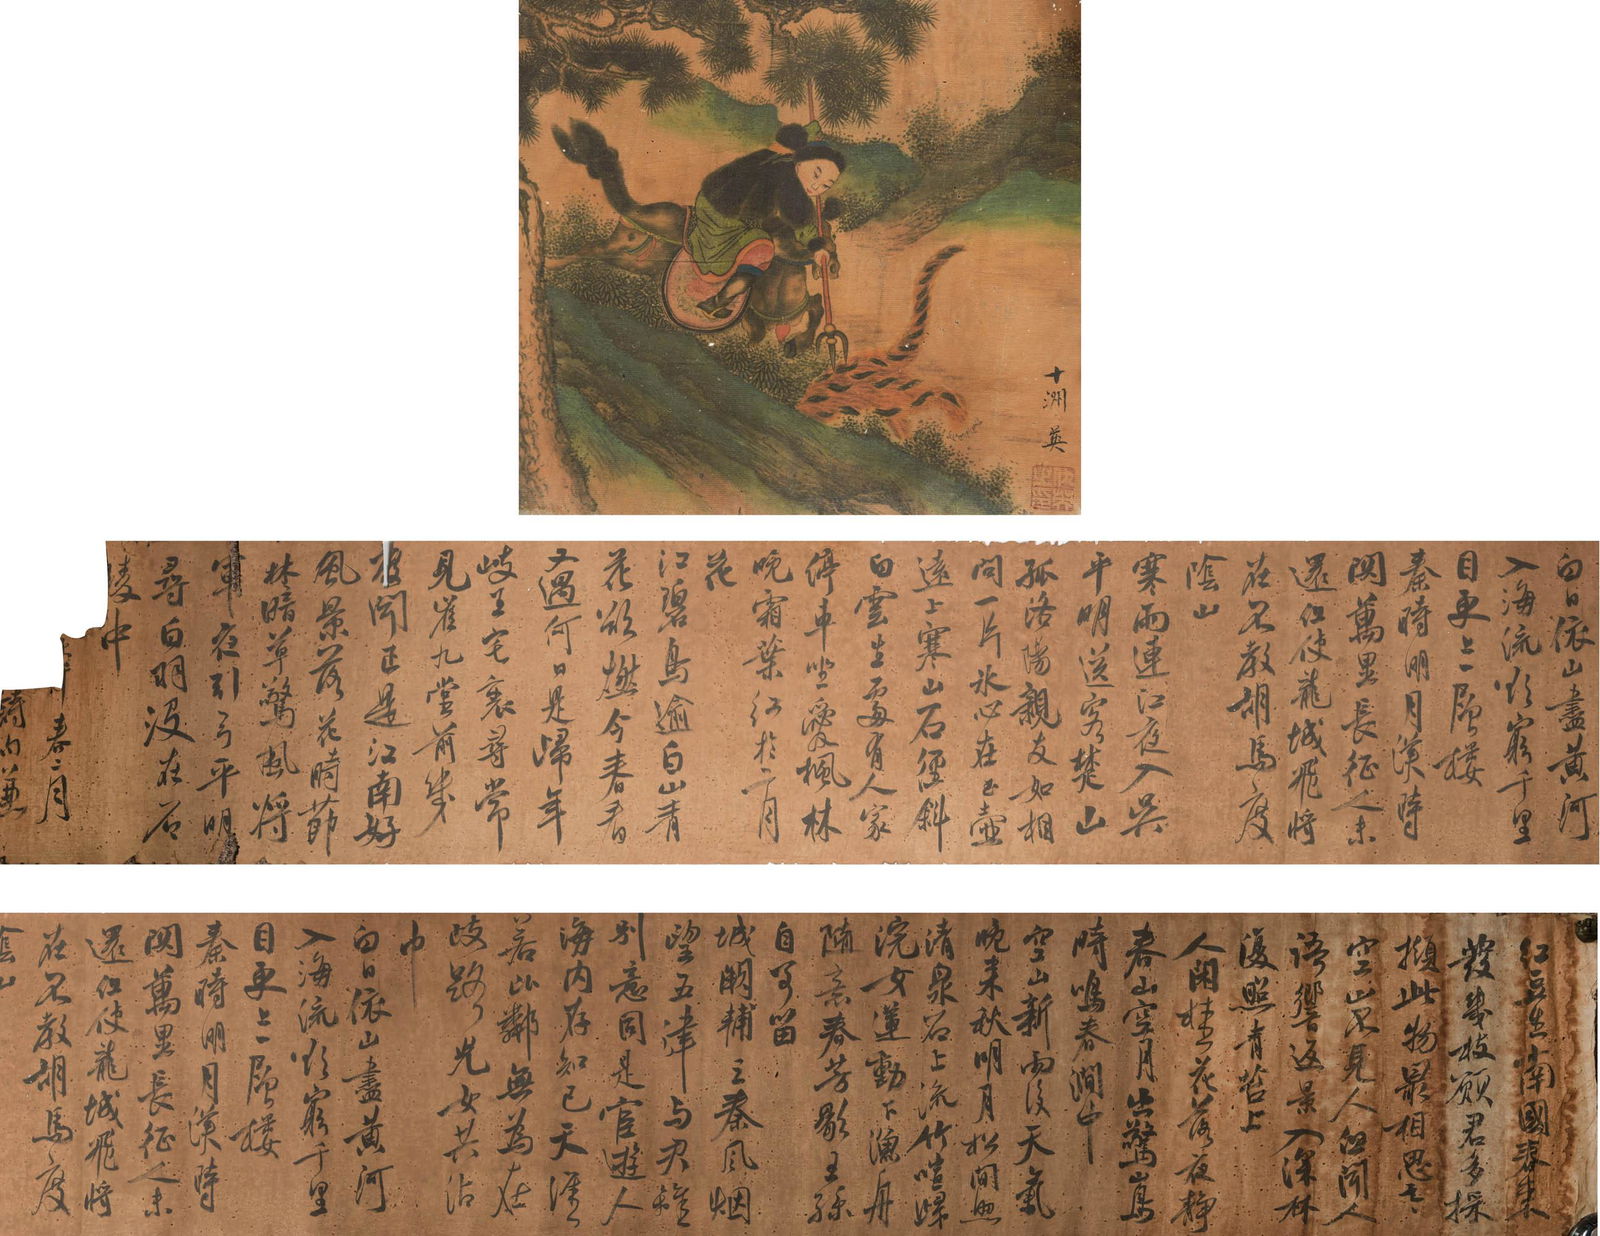 十洲 英
白日依山盡黄河
入海流欲窮千里
目更上一層楼
秦時明月漢時
関萬里長征人未
還但使龍城飛将
在不教胡馬度
陰山
寒雨連江夜入吴
平明送客楚山
孤洛陽親友如相
问一片氷心在玉壺
遠上寒山石径斜
白雲生處有人家
停車坐愛楓林
晚霜葉红於二月
花
江碧鳥逾白山青
花欲燃今春看
又過何日是歸年
岐王宅裏尋常
見崔九堂前幾
度闻正是江南好
風景落花時節
林暗草驚風将
軍夜引弓平明
尋白羽没在石
棱中
春二月
红豆生南國春来
發幾枝願君多採
擷此物最相思
空山不見人但闻人
语響返景入深林
復照青苔上
人闲桂花落夜静
春山空月出驚山鳥
時鳴春澗中
空山新雨後天氣
晚来秋明月松間照
清泉石上流竹喧歸
浣女蓮動下漁舟
随意春芳歇王孫
自可留
城闕輔三秦风烟
望五津与君離
别意同是宦遊人
海内存知己天涯
若比鄰無為在
歧路兒女共沾
巾
白日依山盡黄河
入海流欲窮千里
目更上一層楼
秦時明月漢時
関萬里長征人未
還但使龍城飛将
在不教胡馬度
陰山